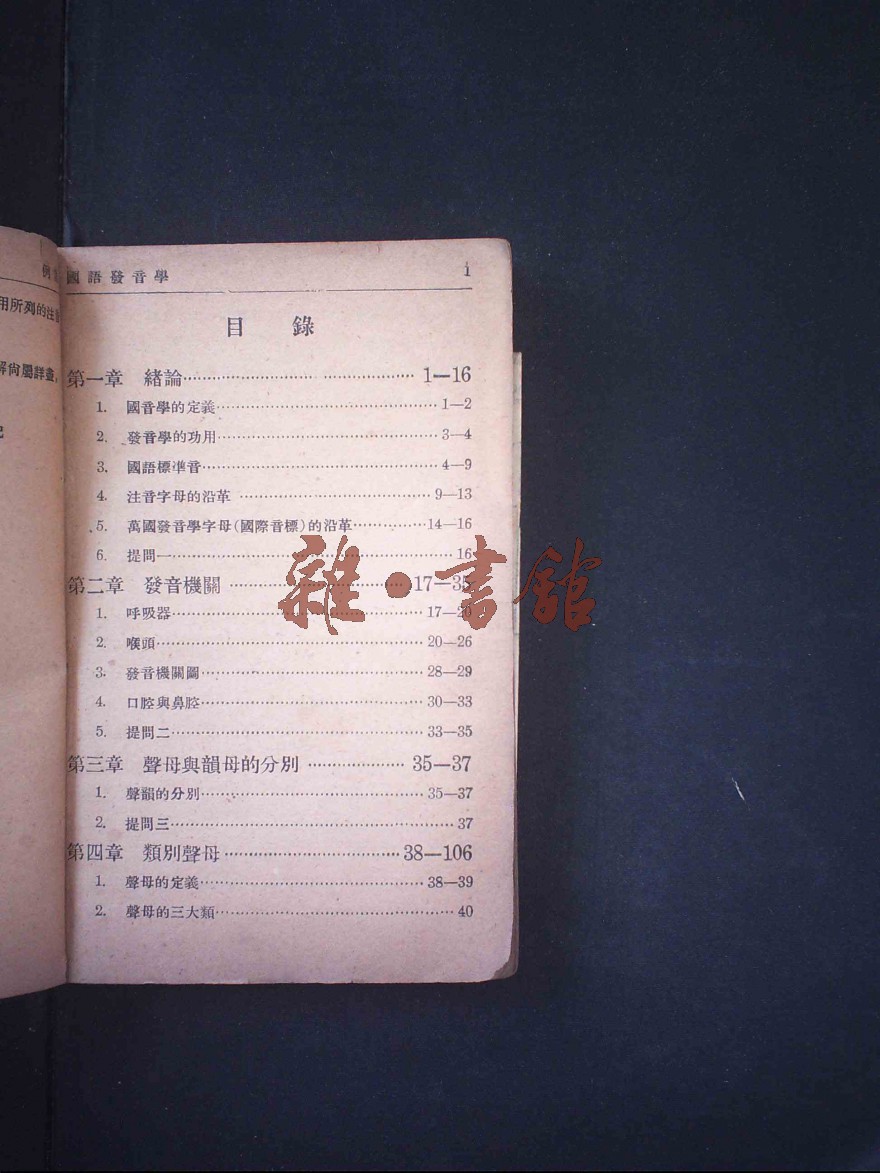 國語發音學 1
目錄
第一章 緒論 1—16
1. 國音學的定義 1—2
2. 發音學的功用 3—4
3. 國語標準音 4—9
4. 注音字母的沿革 9—13
5. 萬國發音學字母(國際音標)的沿革 14—16
6. 提問一 16
第二章 發音機關 17—35
1. 呼吸器 17—20
2. 喉頭 20—26
3. 發音機關圖 28—29
4. 口腔與鼻腔 30—33
5. 提問二 33—35
第三章 聲母與韻母的分別 35—37
1. 聲韻的分別 35—37
2. 提問三 37
第四章 類別聲母 38—106
1. 聲母的定義 38—39
2. 聲母的三大類 40
雜·書館
例
用所列的注
解尙屬詳盡,